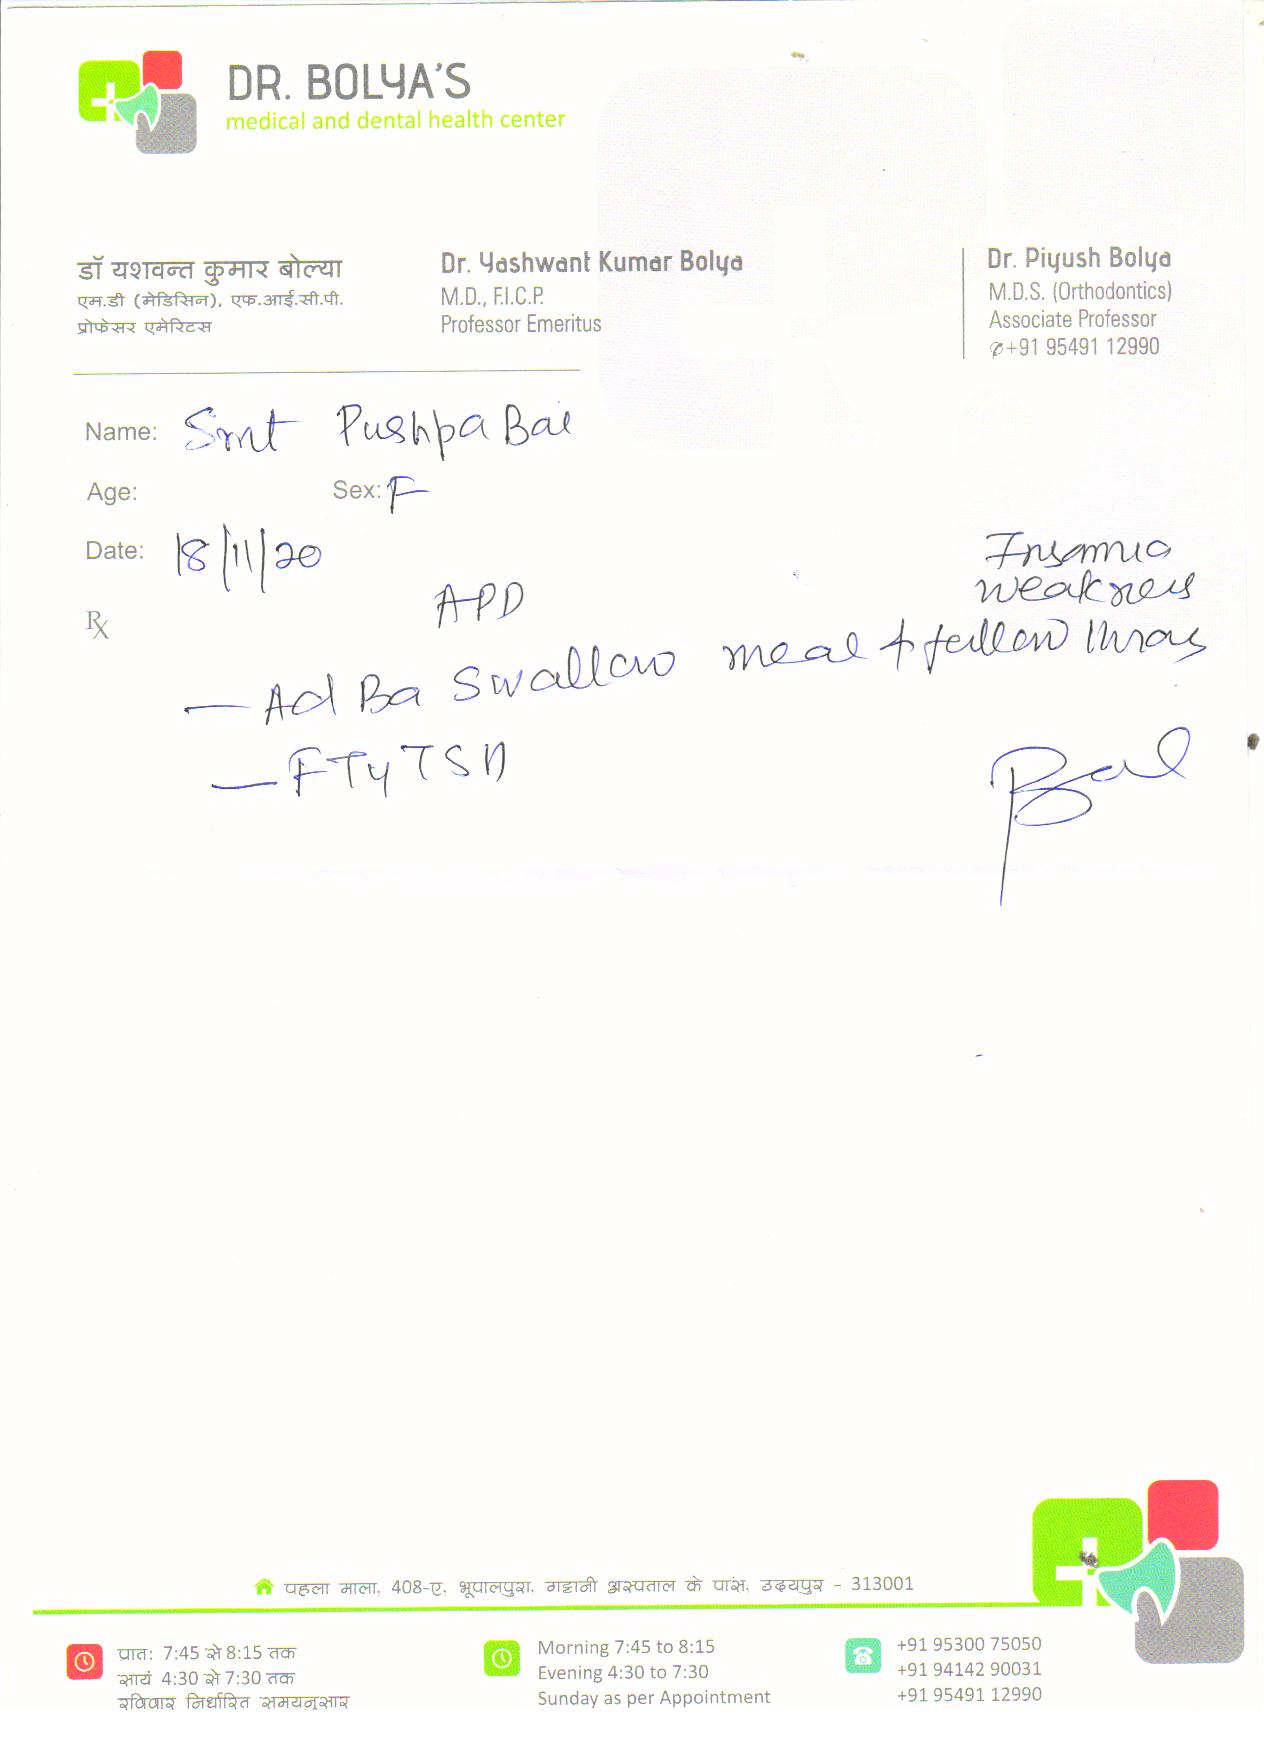 DR. BOLYA'S
medical and dental health center
डॉ यशवन्त कुमार बोल्या
एम.डी (मेडिसिन), एफ.आई.सी.पी.
प्रोफेसर एमेरिटस
Dr. Yashwant Kumar Bolya
M.D., F.I.C.P.
Professor Emeritus
Dr. Piyush Bolya
M.D.S. (Orthodontics)
Associate Professor
+91 95491 12990
Name: Smt Pushpa Bai
Age: Sex: F
Date: 18/11/20
Insomnia
weakness
Rx APD
— Ad Ba Swallow meal + follow throug
— FT4 TSH
पहला माला, 408-ए, भूपालपुरा, गट्टानी अस्पताल के पास, उदयपुर - 313001
प्रात: 7:45 से 8:15 तक
सायं 4:30 से 7:30 तक
रविवार निर्धारित समयनुसार
Morning 7:45 to 8:15
Evening 4:30 to 7:30
Sunday as per Appointment
+91 95300 75050
+91 94142 90031
+91 95491 12990